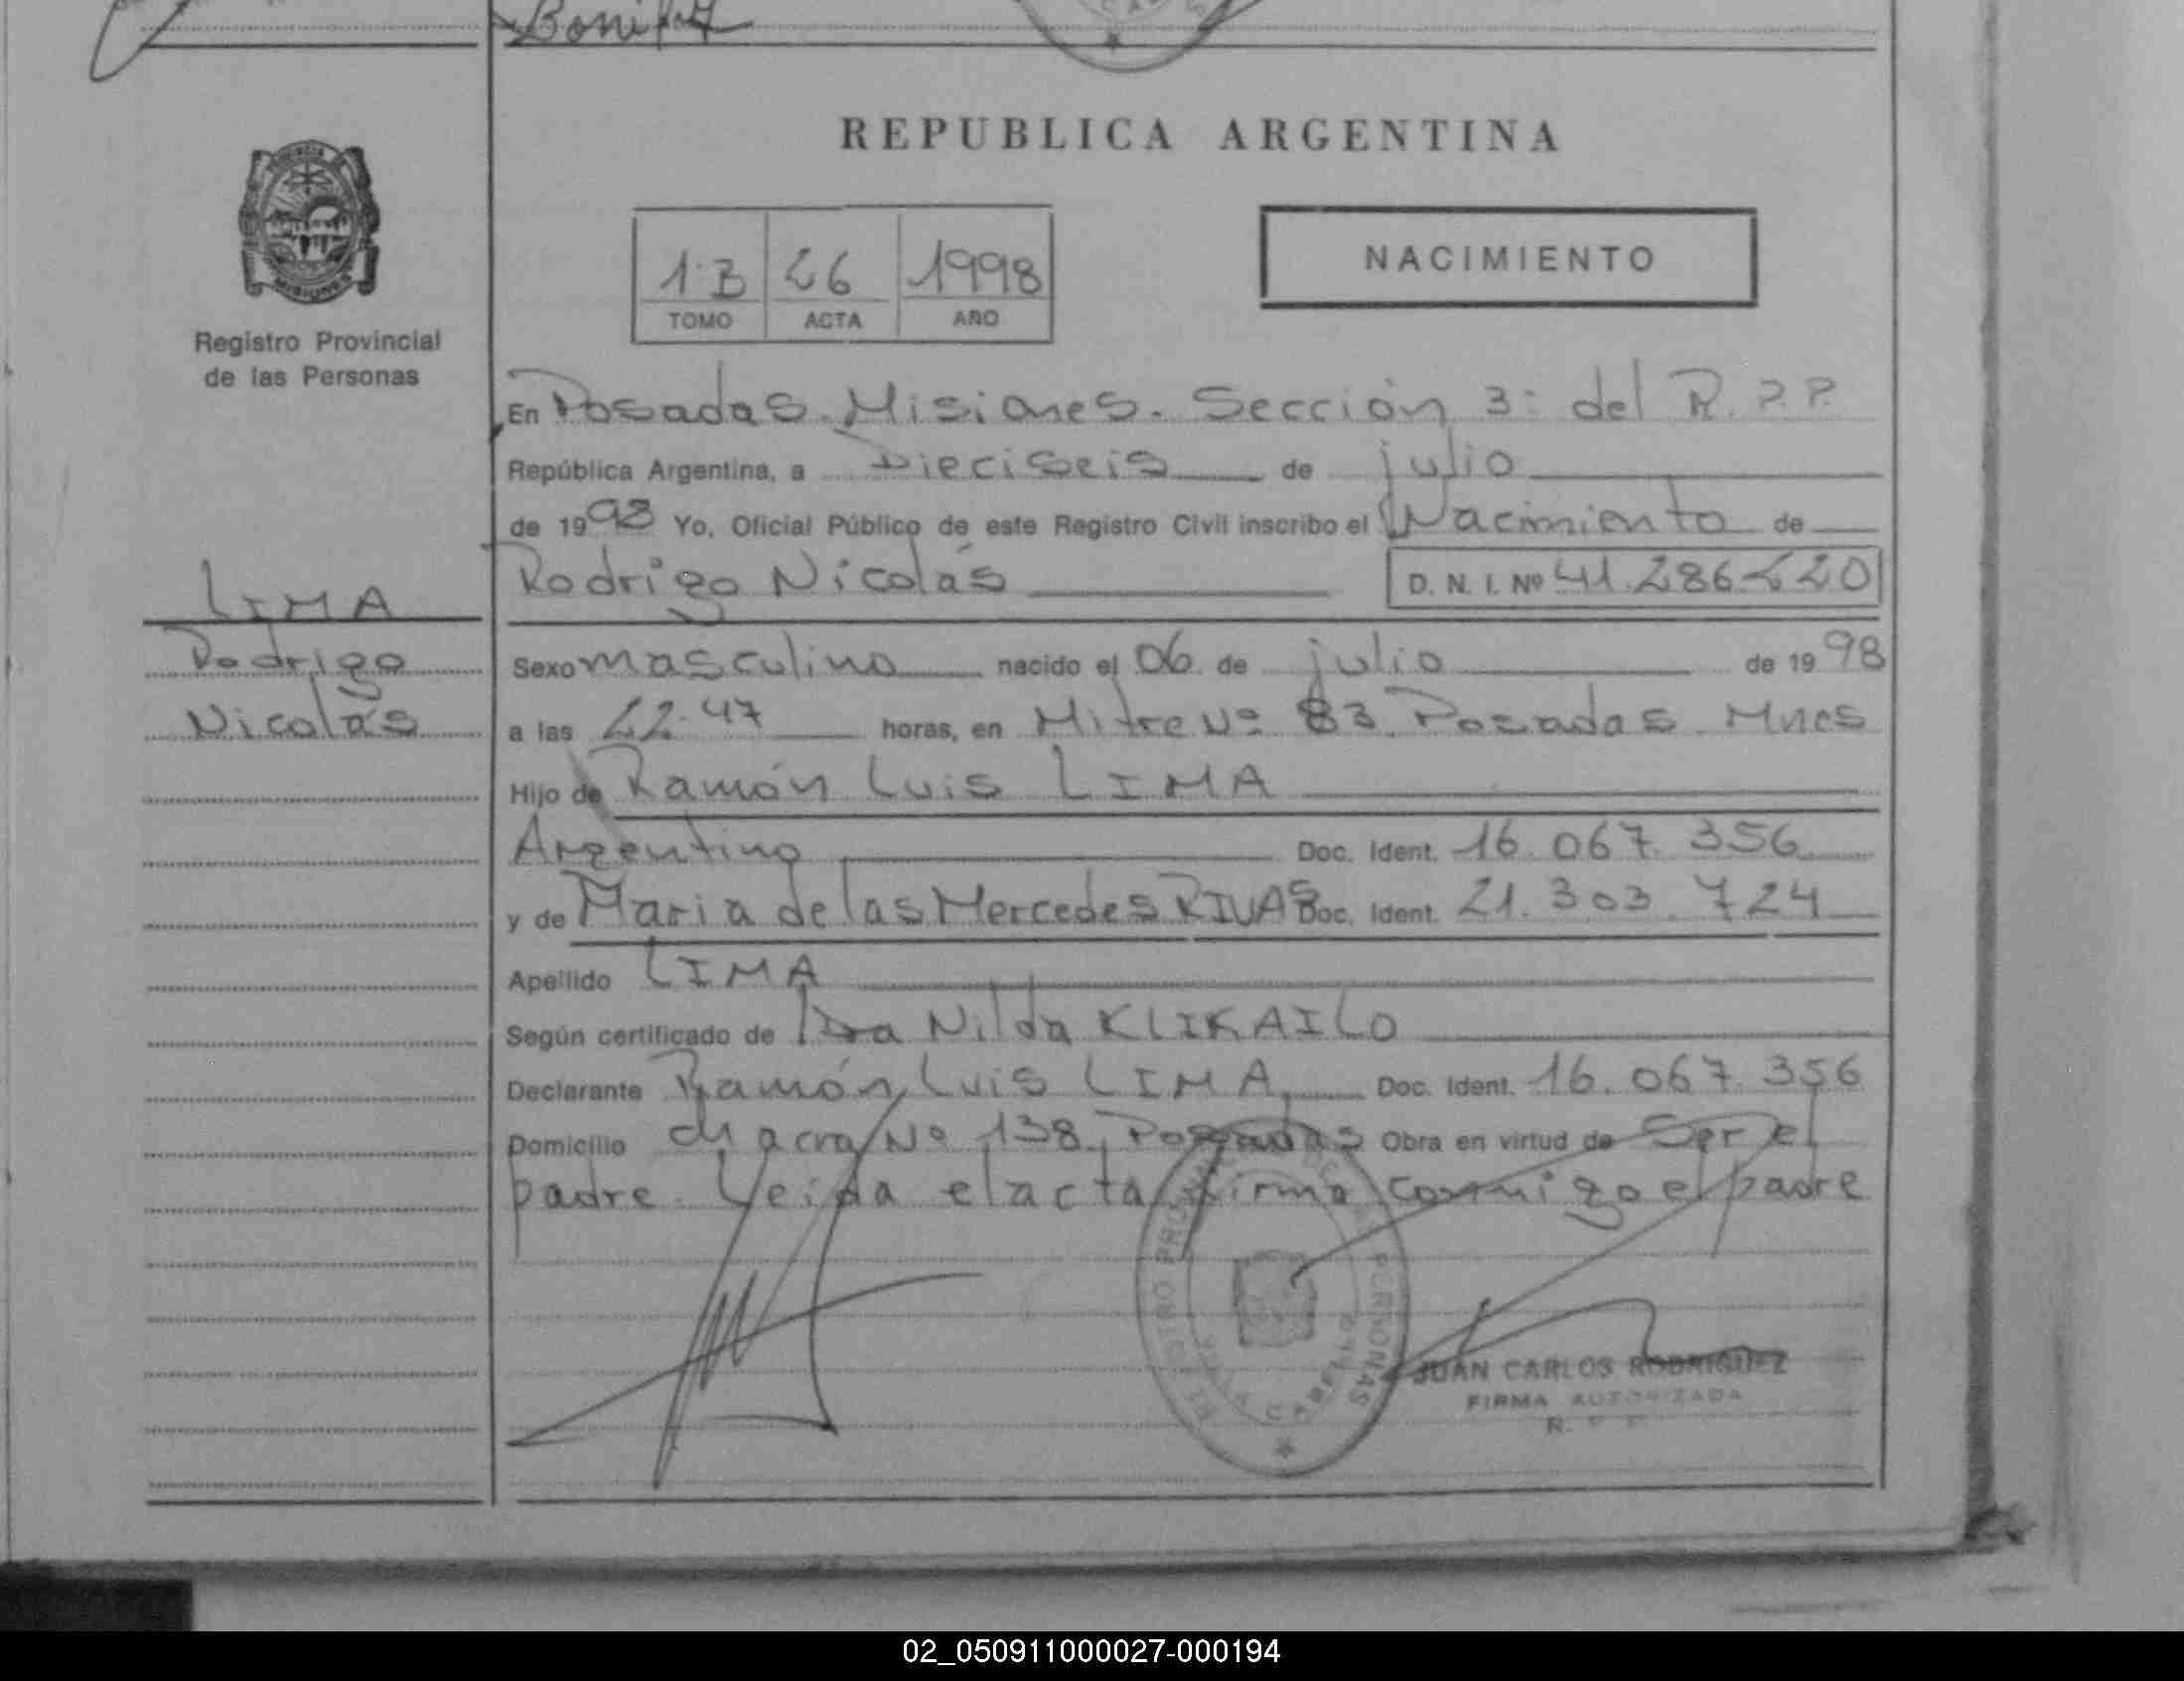 Bonifaz
REPUBLICA ARGENTINA
PROVINCIA DE
MISIONES
Registro Provincial
de las Personas
1.B 26 1998
TOMO ACTA AÑO
NACIMIENTO
En Posadas. Misiones. Sección 3: del R.P.P.
República Argentina, a Dieciseis de julio
de 1998 Yo, Oficial Público de este Registro Civil inscribo el Nacimiento de
Rodrigo Nicolás D. N. I. Nº 41.286.220
LIMA
Rodrigo
Nicolás
Sexo masculino nacido el 06 de julio de 1998
a las 22.47 horas, en Mitre Nº 83. Posadas. Mnes
Hijo de Ramón Luis LIMA
Argentino Doc. Ident. 16.067.356
y de Maria de las Mercedes RIVAS Doc. Ident. 21.303.724
Apellido LIMA
Según certificado de Dra Nilda KLIKAILO
Declarante Ramón Luis LIMA Doc. Ident. 16.067.356
Domicilio chacra Nº 138, Posadas Obra en virtud de Ser el
padre. Leída el acta firma conmigo el padre
PERSONAS
JUAN CARLOS RODRIGUEZ
FIRMA AUTORIZADA
R. P. P.
02_050911000027-000194